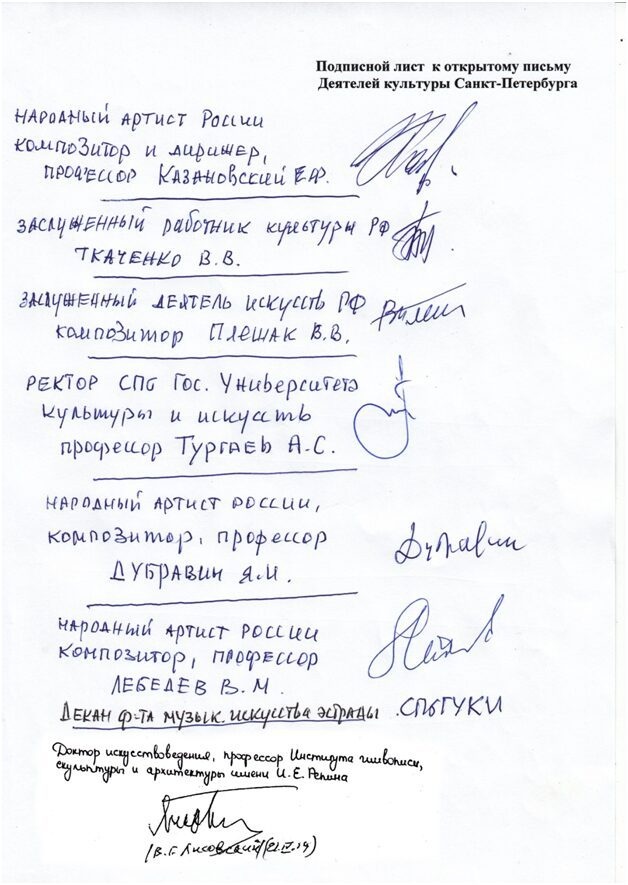 Подписной лист к открытому письму
Деятелей культуры Санкт-Петербурга
НАРОДНЫЙ АРТИСТ РОССИИ
КОМПОЗИТОР И ДИРИЖЕР,
ПРОФЕССОР КАЗАНОВСКИЙ Е.Ф.
ЗАСЛУЖЕННЫЙ РАБОТНИК КУЛЬТУРЫ РФ
ТКАЧЕНКО В.В.
ЗАСЛУЖЕННЫЙ ДЕЯТЕЛЬ ИСКУССТВ РФ
КОМПОЗИТОР ПЛЕШАК В.В.
РЕКТОР СПб Гос. Университета
культуры и искусств
профессор ТУРГАЕВ А.С.
НАРОДНЫЙ АРТИСТ РОССИИ,
композитор, профессор
ДУБРАВИН Я.И.
Дубравин
НАРОДНЫЙ АРТИСТ РОССИИ
КОМПОЗИТОР, ПРОФЕССОР
ЛЕБЕДЕВ В.М.
ДЕКАН Ф-ТА МУЗЫК. ИСКУССТВА ЭСТРАДЫ. СПбГУКИ
Доктор искусствоведения, профессор Института живописи,
скульптуры и архитектуры имени И.Е. Репина
/В.Г. Лисовский/